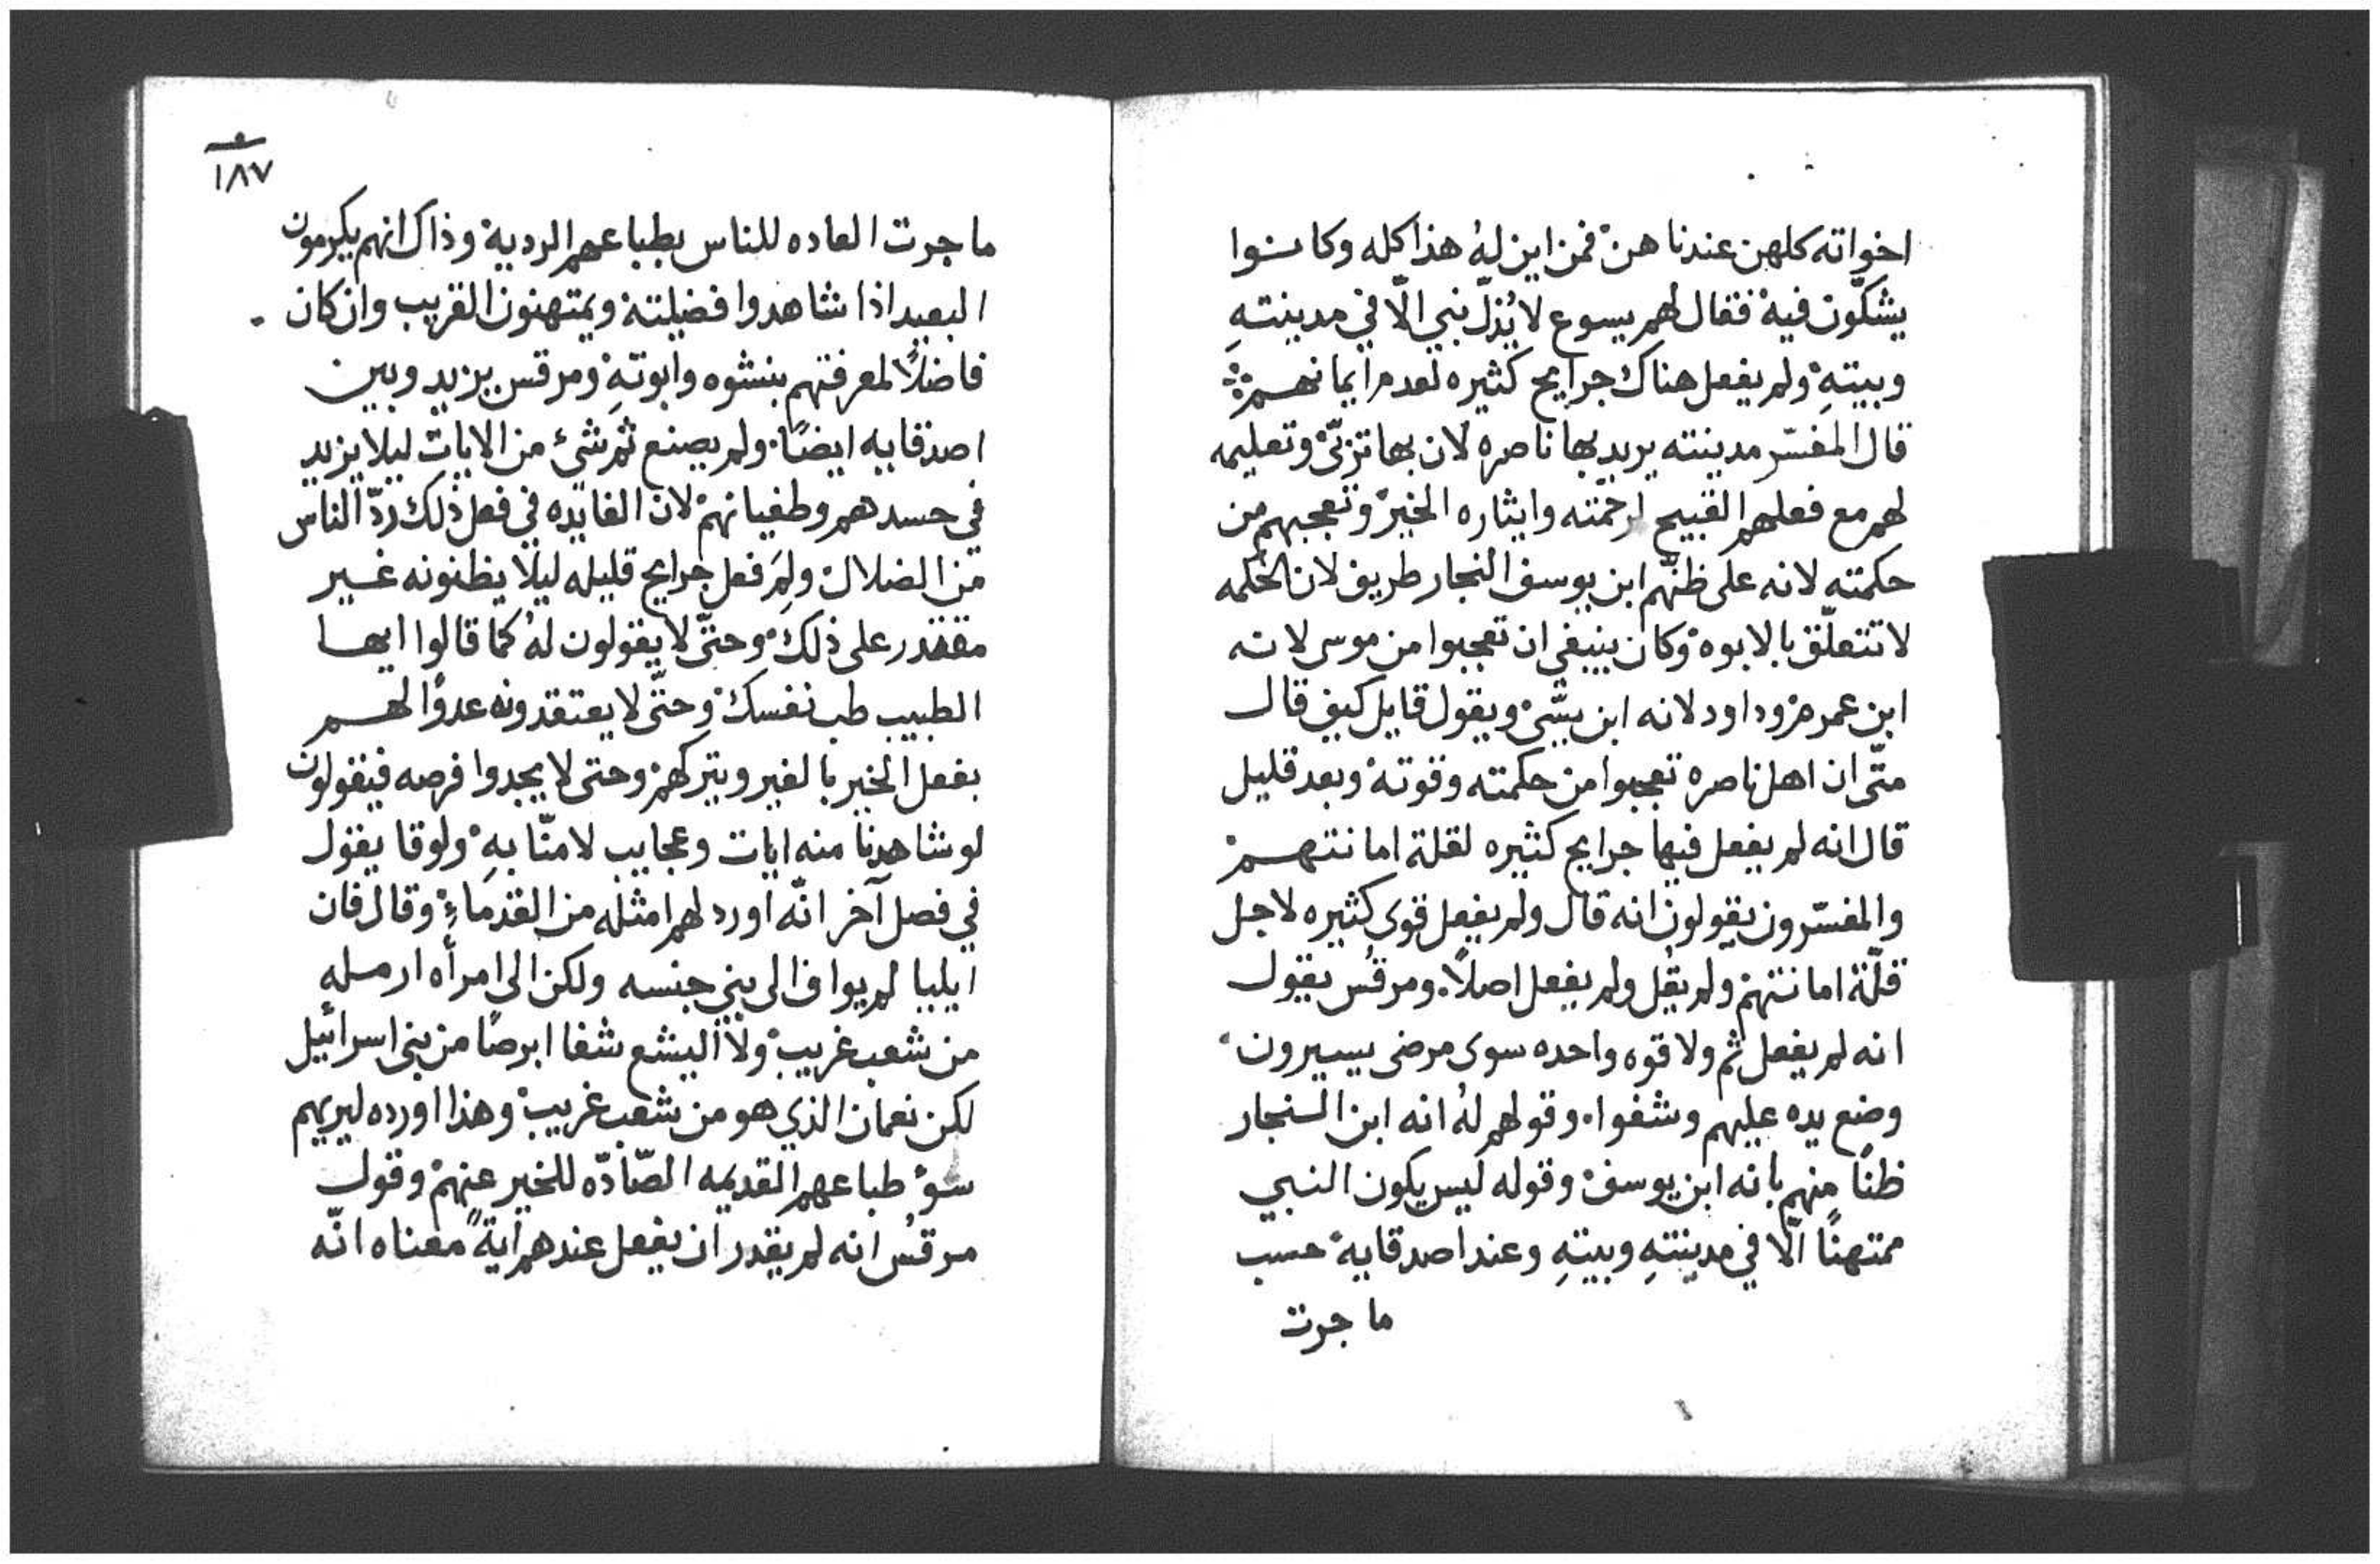 اخواته كلهن عندنا هن فمن اين لهُ هذا كله وكانوا
يشكّون فيه فقال لهم يسوع لا يُذلّ نبي الّا في مدينتهِ
وبيتهِ ولم يفعل هناك جرايح كثيره لعدم ايمانهم
قال المفسّر مدينته يريد بها ناصره لان بها تربّى وتعليمه
لهم مع فعلهم القبيح لرحمته وايثاره الخير وتعجبهم من
حكمته لانه على ظنّهم ابن يوسف النجار طريف لان الحكمه
لا تتعلّق بالابوه وكان ينبغي ان تعجبوا من موسى لانه
ابن عمرم وداود لانه ابن يسّى ويقول قايل كيف قال
متّى ان اهل ناصره تعجبوا من حكمته وقوته وبعد قليل
قال انه لم يفعل فيها جرايح كثيره لقلة امانتهم
والمفسّرون يقولون انه قال ولم يفعل قوى كثيره لاجل
قلّة امانتهم ولم يقُل ولم يفعل اصلاً. ومرقُس يقول
انه لم يفعل ثم ولا قوه واحده سوى مرضى يسيرون
وضع يده عليهم وشفوا. وقولهم لهُ انه ابن النجار
ظنًا منهم بانه ابن يوسف وقوله ليس يكون النبي
ممتهنًا الّا في مدينتهِ وبيتهِ وعند اصدقايه حسب
ما جرت
١٨٧
ما جرت العاده للناس بطباعهم الرديه وذاك انهم يكرمون
البعيد اذا شاهدوا فضيلته ويمتهنون القريب وان كان
فاضلاً لمعرفتهم بنشوه وابوتهِ ومرقس يزيد وبين
اصدقايه ايضًا. ولم يصنع ثم شئ من الايات ليلا يزيد
في حسدهم وطغيانهم لان الفايده في فعل ذلك ردّ الناس
من الضلال ولِمَ فعل جرايح قليله ليلا يظنونه غير
مقتدر على ذلك وحتّى لا يقولون لهُ كما قالوا ايها
الطبيب طب نفسك وحتّى لا يعتقدونه عدوًا لهم
بفعل الخير بالغير ويتركهم وحتى لا يجدوا فرصه فيقولون
لو شاهدنا منه ايات وعجايب لامنّا بهِ ولوقا يقول
في فصل آخر انّه اورد لهم امثله من القدماء وقال فان
ايليا لم يواف الى بني جنسه ولكن الى امرأه ارمله
من شعب غريب ولا اليشع شفا ابرصًا من بني اسرائيل
لكن نعمان الذي هو من شعب غريب وهذا اورده ليريهم
سوء طباعهم القديمه الصّادّه للخير عنهم وقول
مرقُس انه لم يقدر ان يفعل عندهم ايةً معناه انّه